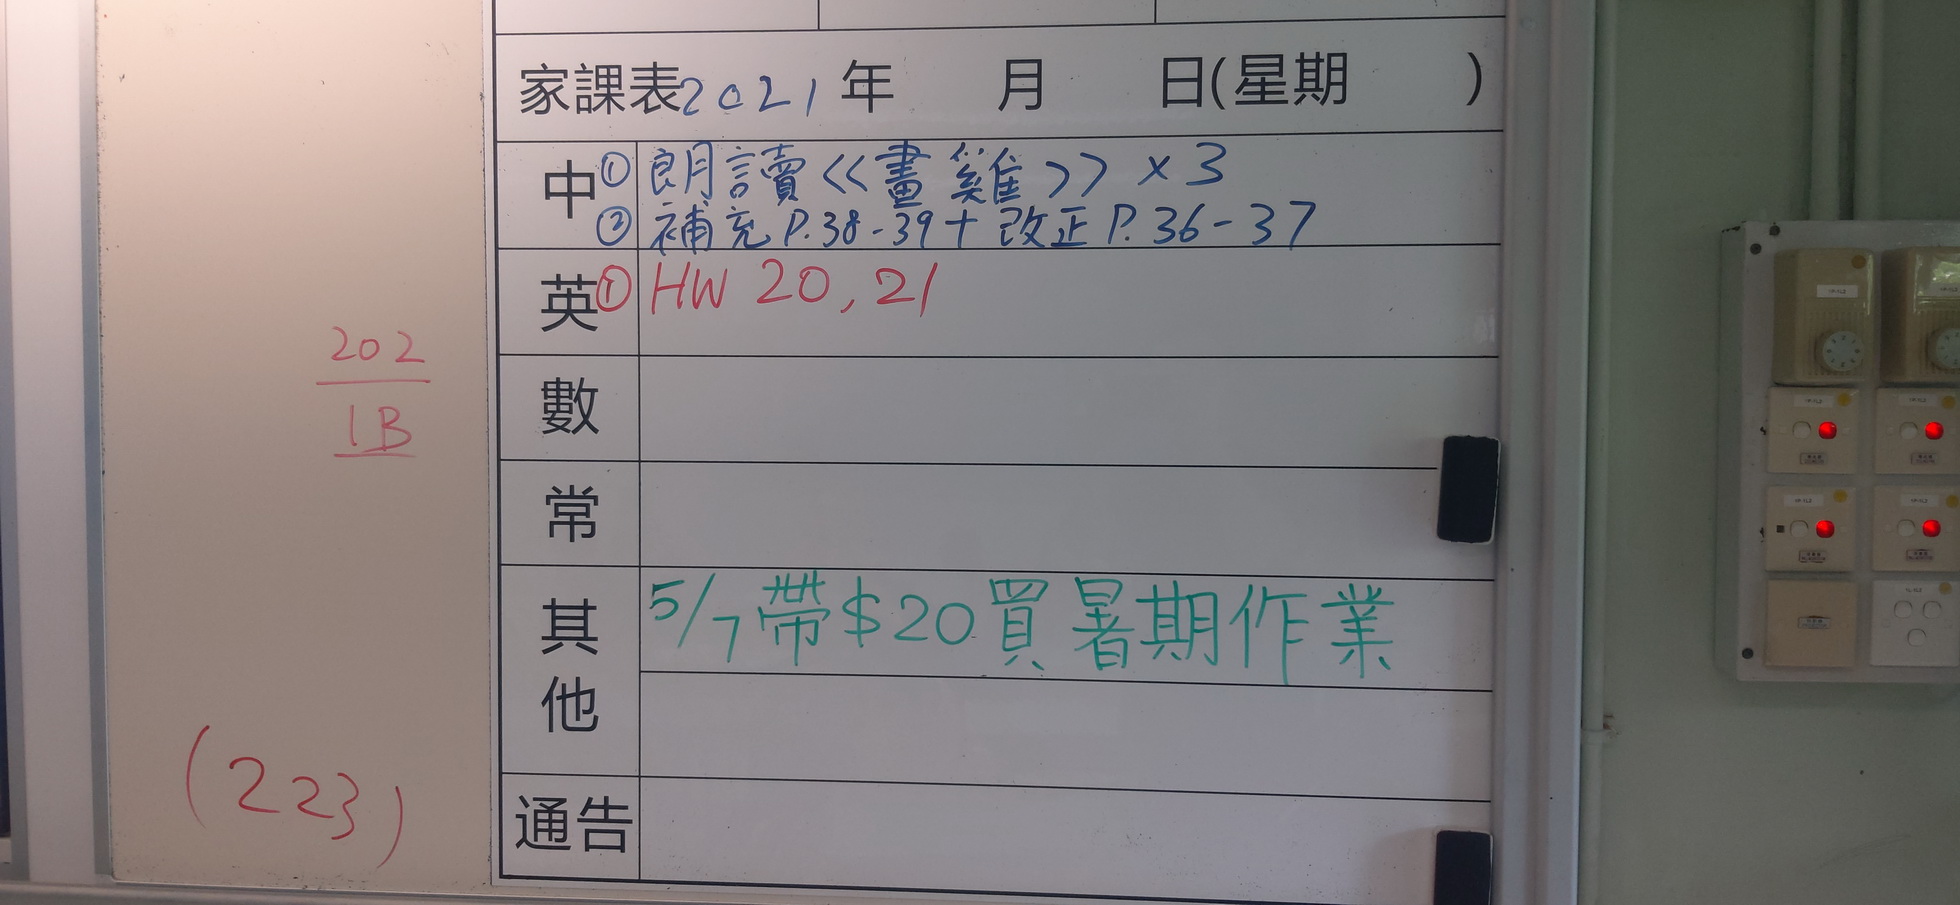 家課表2021年 月 日(星期 )
中 ① 朗讀<<畫雞>> × 3
② 補充 P.38-39 + 改正 P.36-37
英 ① HW 20, 21
數
常
其他 5/7 帶$20買暑期作業
通告
202
1B
(223)